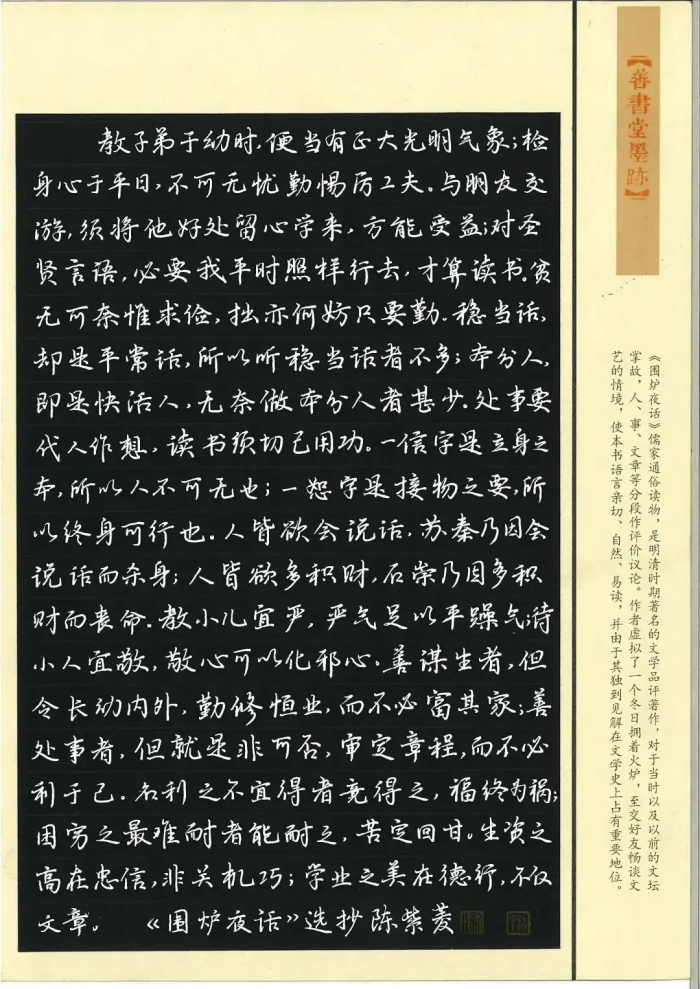 教子弟于幼时，便当有正大光明气象；检
身心于平日，不可无忧勤惕厉工夫。与朋友交
游，须将他好处留心学来，方能受益；对圣
贤言语，必要我平时照样行去，才算读书。贫
无可奈惟求俭，拙亦何妨只要勤。稳当话，
却是平常话，所以听稳当话者不多；本分人，
即是快活人，无奈做本分人者甚少。处事要
代人作想，读书须切己用功。一信字是立身之
本，所以人不可无也；一恕字是接物之要，所
以终身可行也。人皆欲会说话，苏秦乃因会
说话而杀身；人皆欲多积财，石崇乃因多积
财而丧命。教小儿宜严，严气足以平躁气；待
小人宜敬，敬心可以化邪心。善谋生者，但
令长幼内外，勤修恒业，而不必富其家；善
处事者，但就是非可否，审定章程，而不必
利于己。名利之不宜得者竟得之，福终为祸；
困穷之最难耐者能耐之，苦定回甘。生资之
高在忠信，非关机巧；学业之美在德行，不仅
文章。 《围炉夜话》选抄 陈紫菱
【善書堂墨跡】
《围炉夜话》儒家通俗读物，是明清时期著名的文学品评著作，对于当时以及以前的文坛
掌故，人、事、文章等分段作评价议论。作者虚拟了一个冬日拥着火炉，至交好友畅谈文
艺的情境，使本书语言亲切、自然、易读，并由于其独到见解在文学史上占有重要地位。